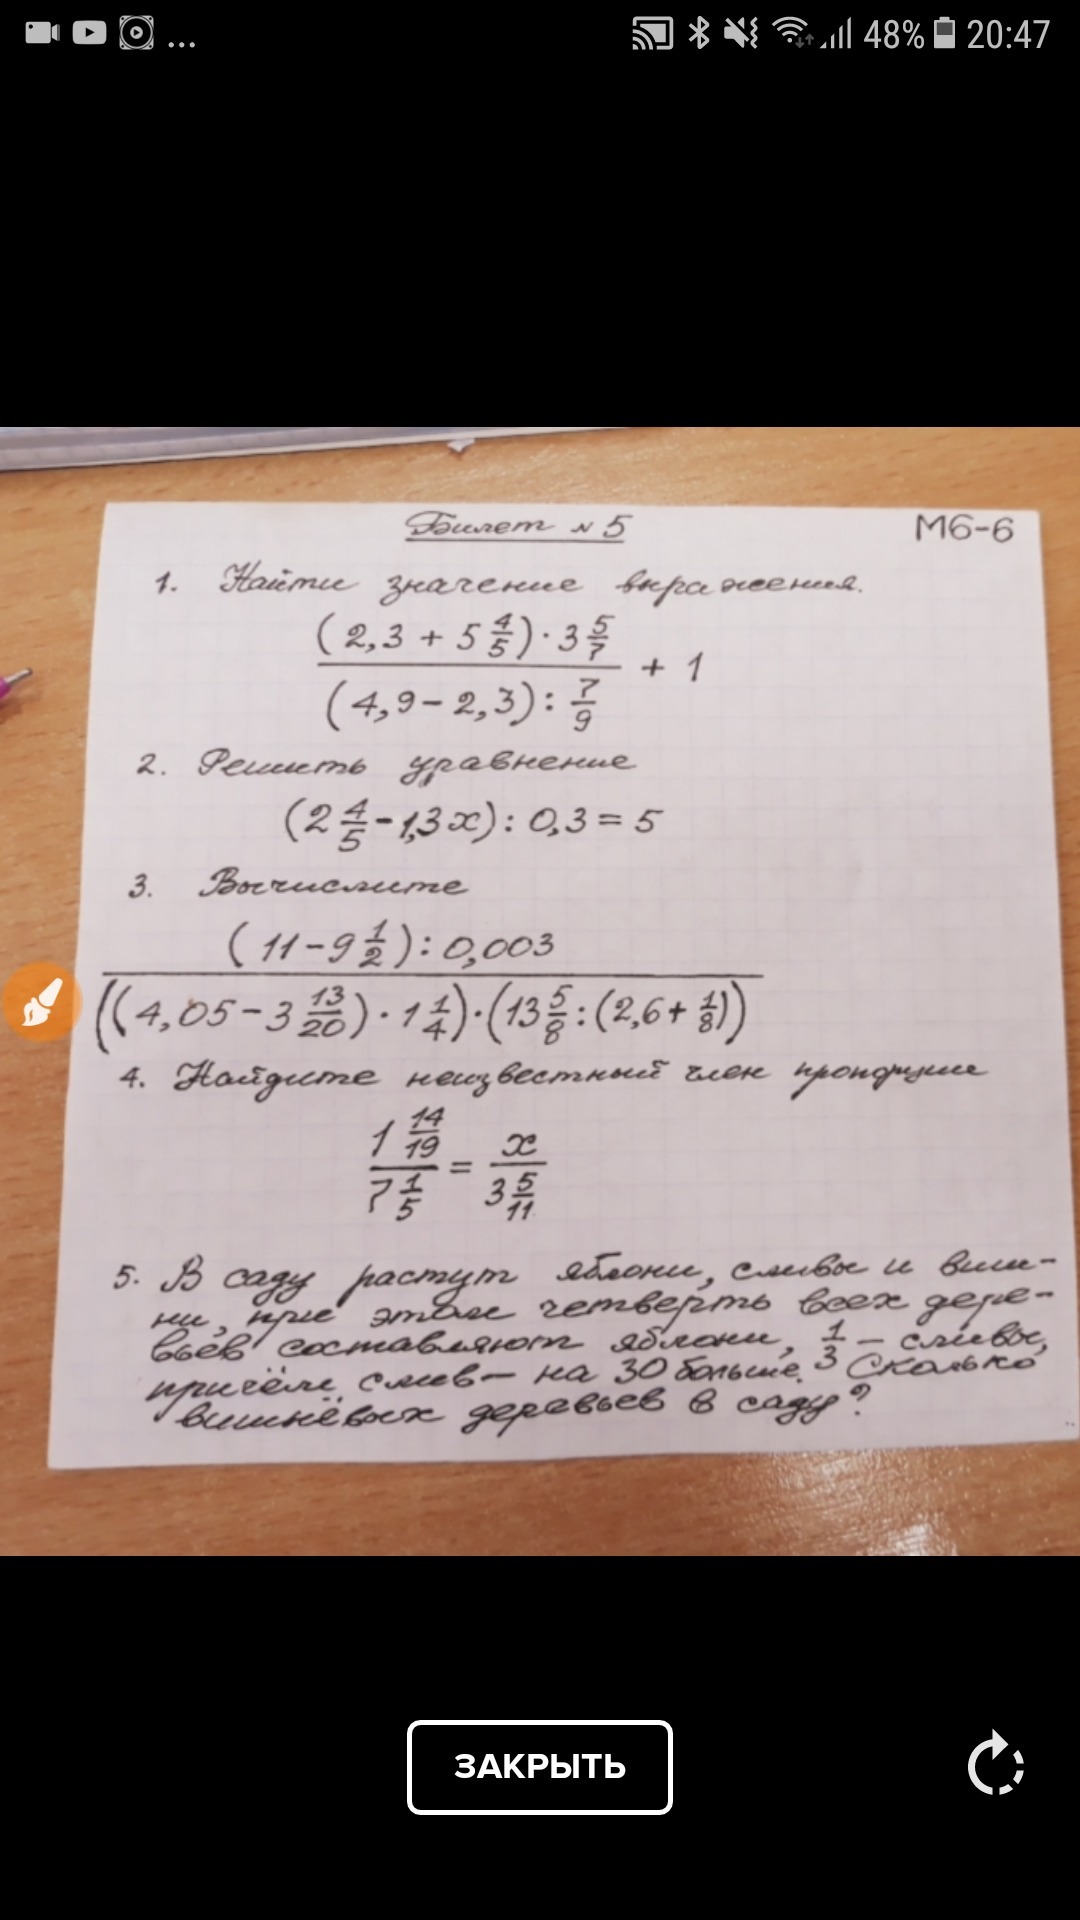 ... 48% 20:47
Билет №5 М6-6
1. Найти значение выражения.
(2,3 + 5 4/5) · 3 5/7
+ 1
(4,9 - 2,3) : 7/9
2. Решить уравнение
(2 4/5 - 1,3x) : 0,3 = 5
3. Вычислите
(11 - 9 1/2) : 0,003
((4,05 - 3 13/20) · 1 1/4) · (13 5/8 : (2,6 + 1/8))
4. Найдите неизвестный член пропорции
1 14/19 / 7 1/5 = x / 3 5/11
5. В саду растут яблони, сливы и виш-
ни, при этом четверть всех дере-
вьев составляют яблони, 1/3 – сливы,
причём слив – на 30 больше. Сколько
вишнёвых деревьев в саду?
ЗАКРЫТЬ